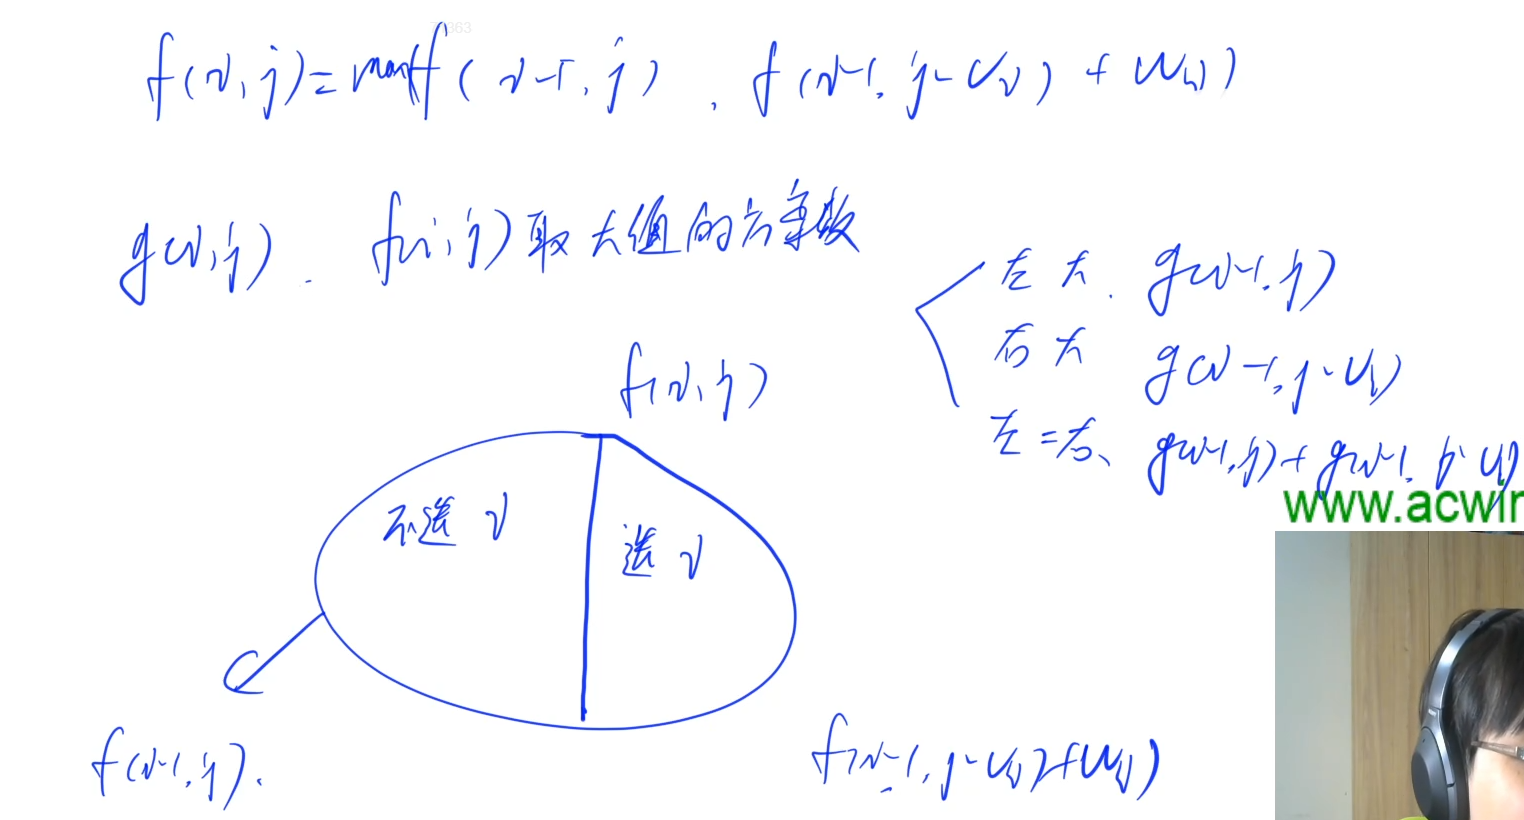 f(i,j)=max f(i-1,j), f(i-1,j-vi)+wi)
g(i,j). f(i,j)取大值的方案数
左大. g(i-1,j)
右大 g(i-1,j-vi)
左=右、g(i-1,j)+g(i-1,j-vi)
f(i,j)
www.acwin
不选 i
选 i
f(i-1,j).
f(i-1,j-vi)+wi)